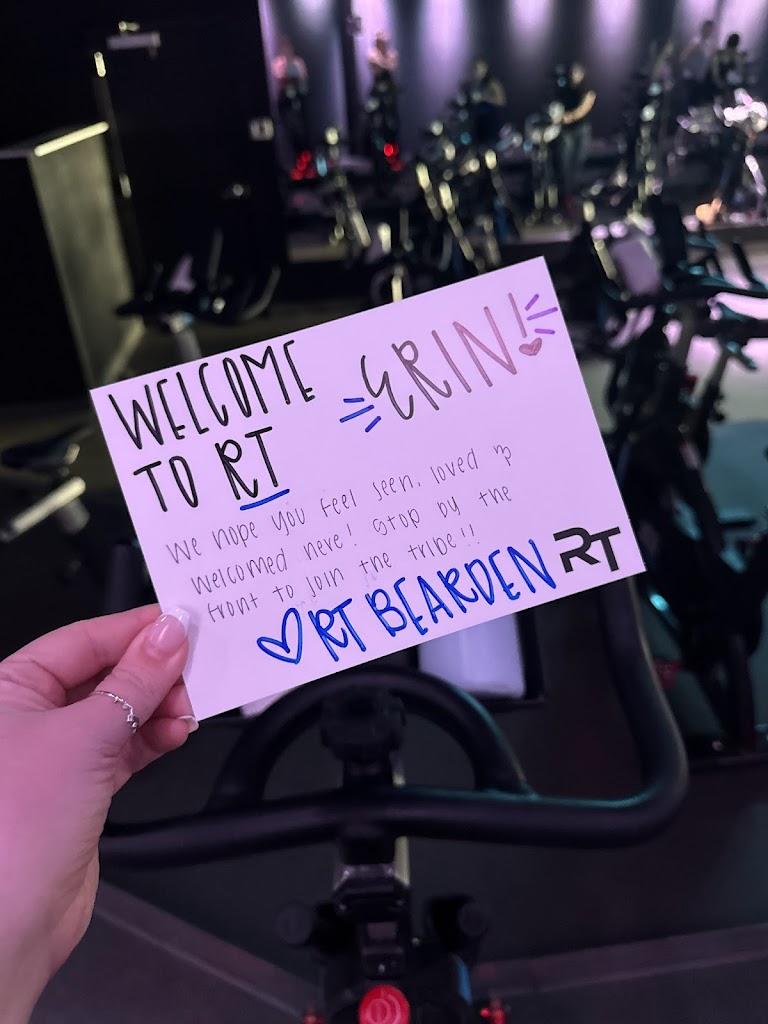 WELCOME
TO RT
ERIN!
We hope you feel seen, loved &
welcomed here! Stop by the
front to join the tribe!!
♡ RT BEARDEN
RT